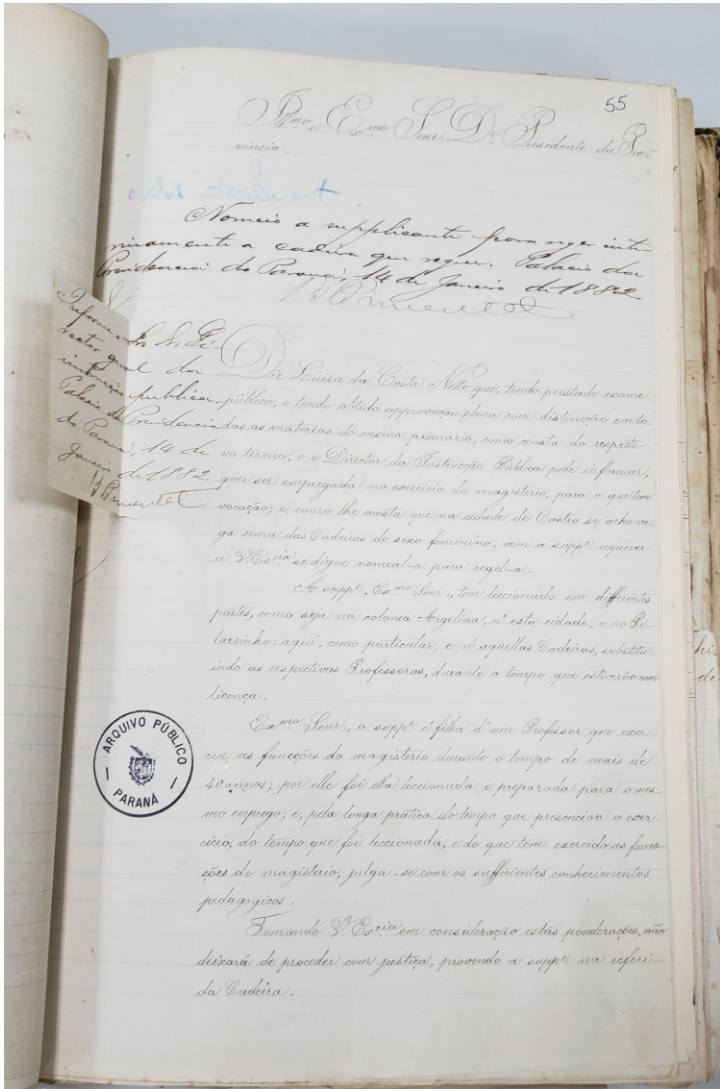 55
Illmo e Exmo Senr. Dr. Presidente da Pro-
vincia.
Nomeio a supplicante para reger inte-
rinamente a cadeira que requer. Palacio da
Presidencia do Paraná, 14 de Janeiro de 1882.
Pimentel
Informe o Sr. Dr. Di-
rector geral da
instrucção publica.
Palacio da Presidencia
do Paraná, 14 de
Janeiro de 1882.
Pimentel
Diz Luiza da Costa Netto que, tendo prestado exame
público, e tendo obtido approvação plena com distincção em to-
das as materias do ensino primario, como consta do respecti-
vo termo, e o Director da Instrucção Pública póde informar,
quer ser empregada no exercicio do magisterio, para o que tem
vocação; e, como lhe consta que na cidade de Castro se acha va-
ga uma das Cadeiras do sexo feminino, vem a suppe. requerer
a V. Excia se digne nomeal-a para regel-a.
A suppe., Exmo Senr., tem leccionado em differentes
partes, como seja na colonia Argelina, n'esta cidade, e no Pi-
larzinho: aqui, como particular, e n'aquellas Cadeiras, substitu-
indo as respectivas Professoras, durante o tempo que estiverão com
licença.
Exmo Senr., a suppe. é filha d'um Professor que exer-
ceu as funcções do magisterio durante o tempo de mais de
40 annos; por elle foi ella leccionada e preparada para o mes-
mo emprego; e, pela longa prática do tempo que presenciou o exer-
cicio, do tempo que foi leccionada, e do que tem exercido as func-
ções do magisterio, julga-se com os sufficientes conhecimentos
pedagogicos.
Tomando V. Excia em consideração estas ponderações, não
deixará de proceder com justiça, provendo a suppe. na referi-
da Cadeira.
ARQUIVO PÚBLICO
PARANÁ